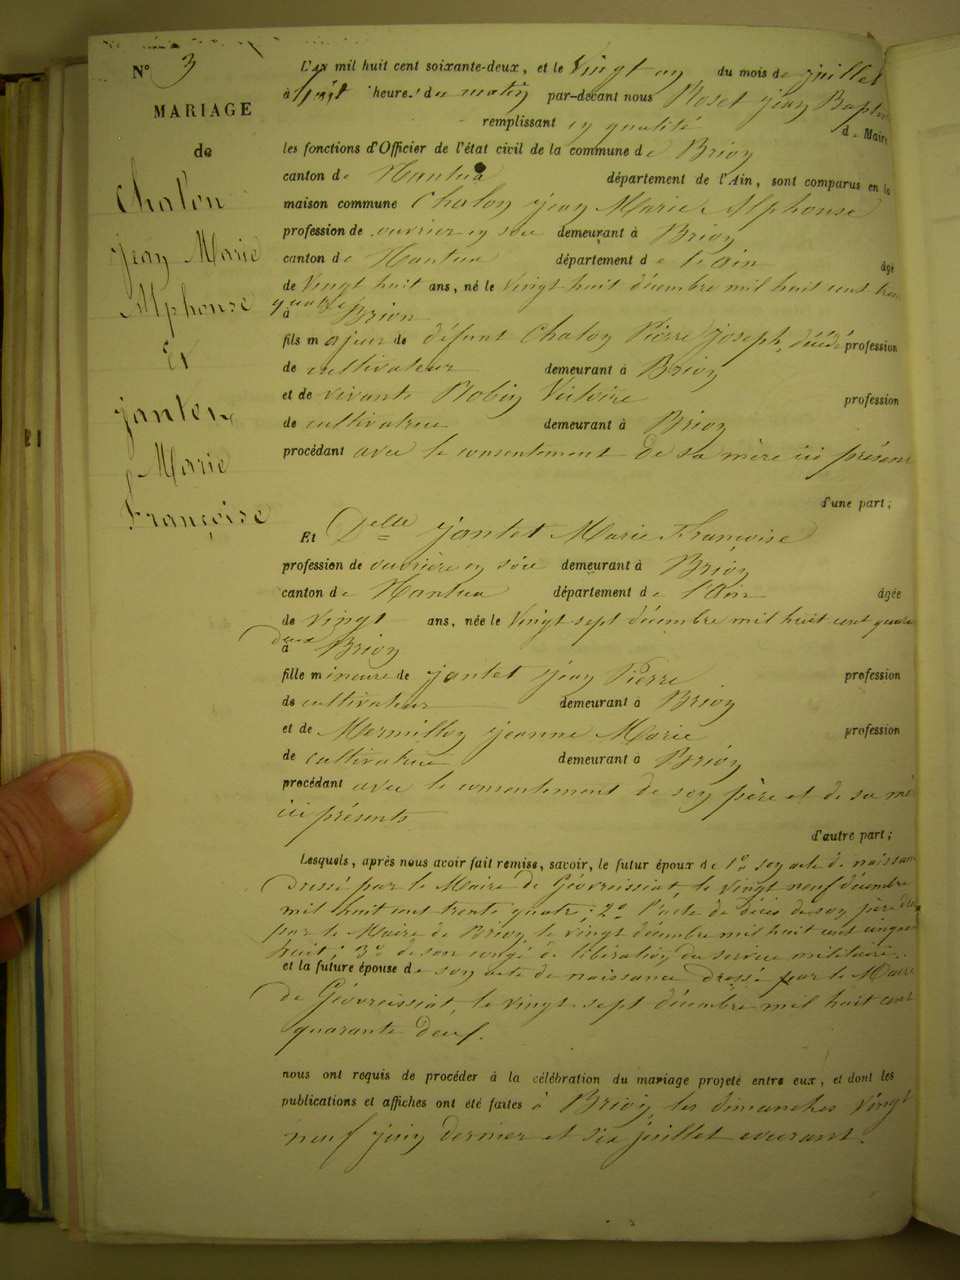 N° 3
MARIAGE
de
Chalon
jean Marie
Alphonse
Et
jantet
Marie
Françoise
L'an mil huit cent soixante-deux, et le Vingt un du mois de juillet
à huit heures du matin par-devant nous Roset jean Baptiste
remplissant en qualité de Maire
les fonctions d'Officier de l'état civil de la commune de Brion
canton de Nantua département de l'Ain, sont comparus en la
maison commune Chalon jean Marie Alphonse
profession de ouvrier en soie demeurant à Brion
canton de Nantua département de l'ain âgé
de Vingt huit ans, né le Vingt huit décembre mil huit cent trente
quatre
à Brion
fils majeur de défunt Chalon Pierre joseph, décédé profession
de cultivateur demeurant à Brion
et de vivante Robin Victoire profession
de cultivatrice demeurant à Brion
procédant avec le consentement de sa mère ici présente
d'une part;
Et Delle jantet Marie Françoise
profession de ouvrière en soie demeurant à Brion
canton de Nantua département de l'Ain âgée
de Vingt ans, née le Vingt sept décembre mil huit cent quarante
deux
à Brion
fille mineure de jantet jean Pierre profession
de cultivateur demeurant à Brion
et de Mermillon jeanne Marie profession
de cultivatrice demeurant à Brion
procédant avec le consentement de son père et de sa mère
ici présents
d'autre part;
Lesquels, après nous avoir fait remise, savoir, le futur époux de 1° son acte de naissance
dressé par le Maire de Géovreissiat, le vingt neuf décembre
mil huit cent trente quatre; 2° l'acte de décès de son père
par le Maire de Brion le vingt décembre mil huit cent cinquante
huit; 3° de son congé de libération du service militaire.
et la future épouse de son acte de naissance dressé par le Maire
de Géovreissiat, le vingt-sept décembre mil huit cent
quarante deux.
nous ont requis de procéder à la célébration du mariage projeté entre eux, et dont les
publications et affiches ont été faites à Brion, les dimanches Vingt
neuf juin dernier et six juillet courant.